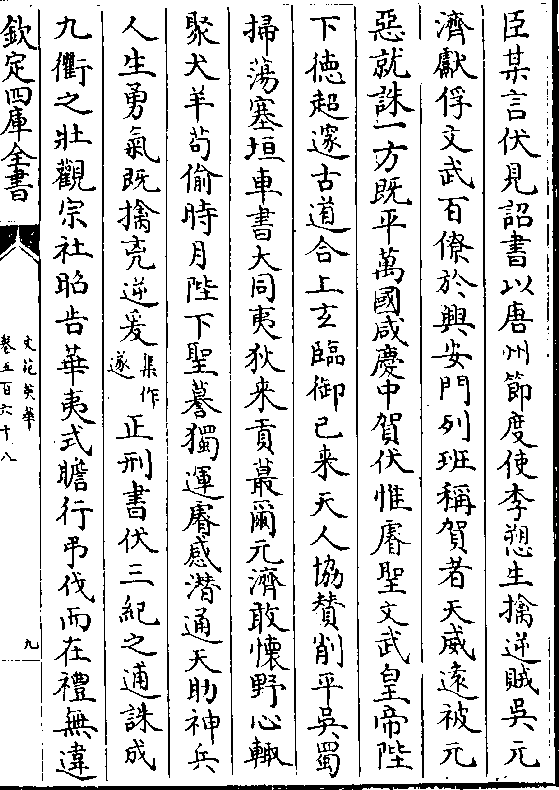 臣某言伏見詔書以唐州節度使李愬生擒逆賊吳元
濟獻俘文武百僚於興安門列班稱賀者天威遠被元
惡就誅一方既平萬國咸慶中賀伏惟睿聖文武皇帝陛
下德超邃古道合上玄臨御已來天人協賛削平吳蜀
掃蕩塞垣車書大同夷狄来貢蕞爾元濟敢懷野心輙
聚犬羊苟偷時月陛下聖謩獨運睿感潛通天助神兵
人生勇氣既擒兇逆爰集作遂正刑書伏三紀之逋誅成
九衢之壯觀宗社昭告華夷式瞻行弔伐而在禮無違
欽定四庫全書
文苑英華
卷五百六十八
九